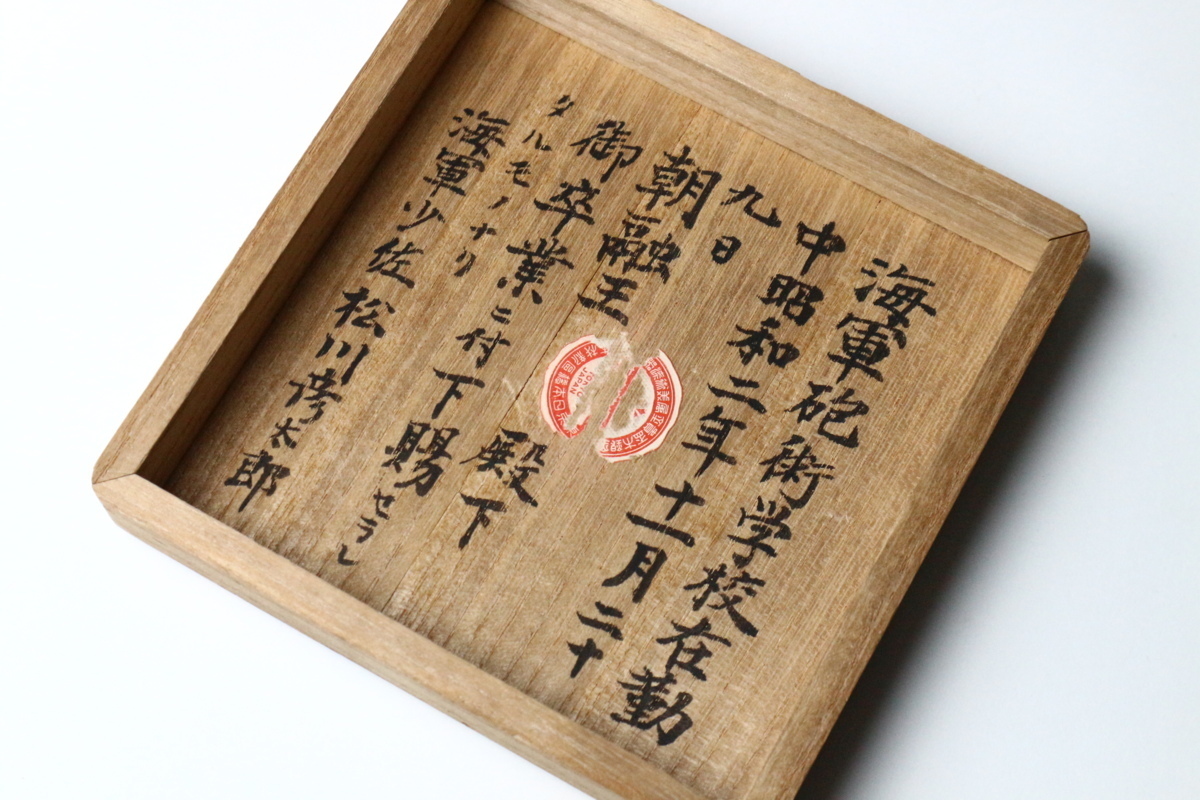 海軍砲術学校在勤
中昭和二年十一月二十
九日
朝融王殿下
御卒業ニ付下賜セラレ
タルモノナリ
海軍少佐松川彦太郎
TOKYO
JAPAN